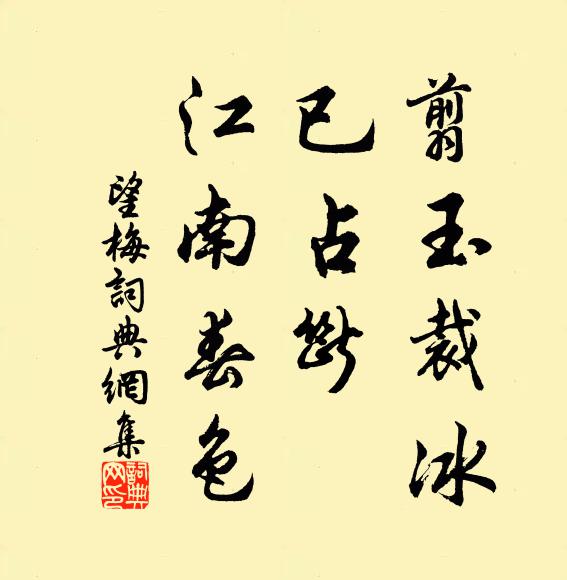 翦玉裁冰
已占断
江南春色
望梅詞典網集
詞典网印